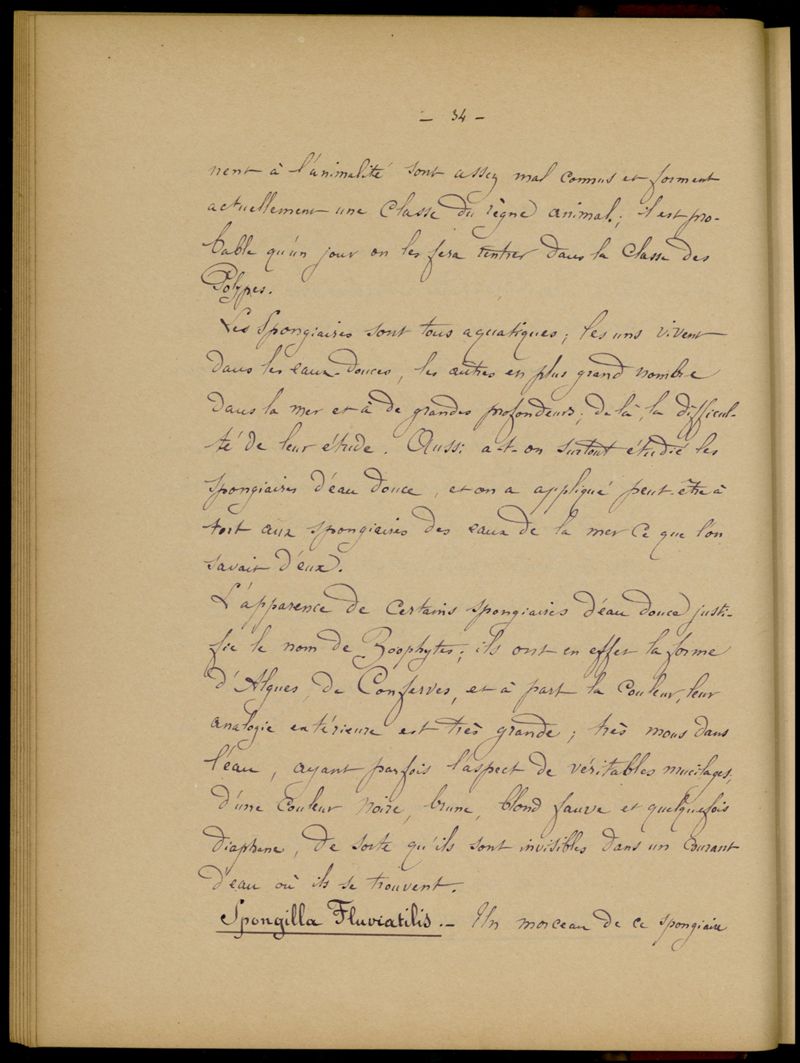 — 34 —
nent à l'animalité sont assez mal connus et forment
actuellement une classe du règne animal; il est pro-
bable qu'un jour on les fera rentrer dans la classe des
Polypes.
Les Spongiaires sont tous aquatiques; les uns vivent
dans les eaux douces, les autres en plus grand nombre
dans la mer et à de grandes profondeurs; de là, la difficul-
té de leur étude. Aussi a-t-on surtout étudié les
spongiaires d'eau douce, et on a appliqué peut-être à
tort aux spongiaires des eaux de la mer ce que l'on
savait d'eux.
L'apparence de certains spongiaires d'eau douce justi-
fie le nom de Zoophytes; ils ont en effet la forme
d'Algues, de Conferves, et à part la couleur, leur
analogie extérieure est très grande; très mous dans
l'eau, ayant parfois l'aspect de véritables mucilages,
d'une couleur noire, brune, blond fauve et quelquefois
diaphane, de sorte qu'ils sont invisibles dans un courant
d'eau où ils se trouvent.
Spongilla Fluviatilis. — Un morceau de ce spongiaire